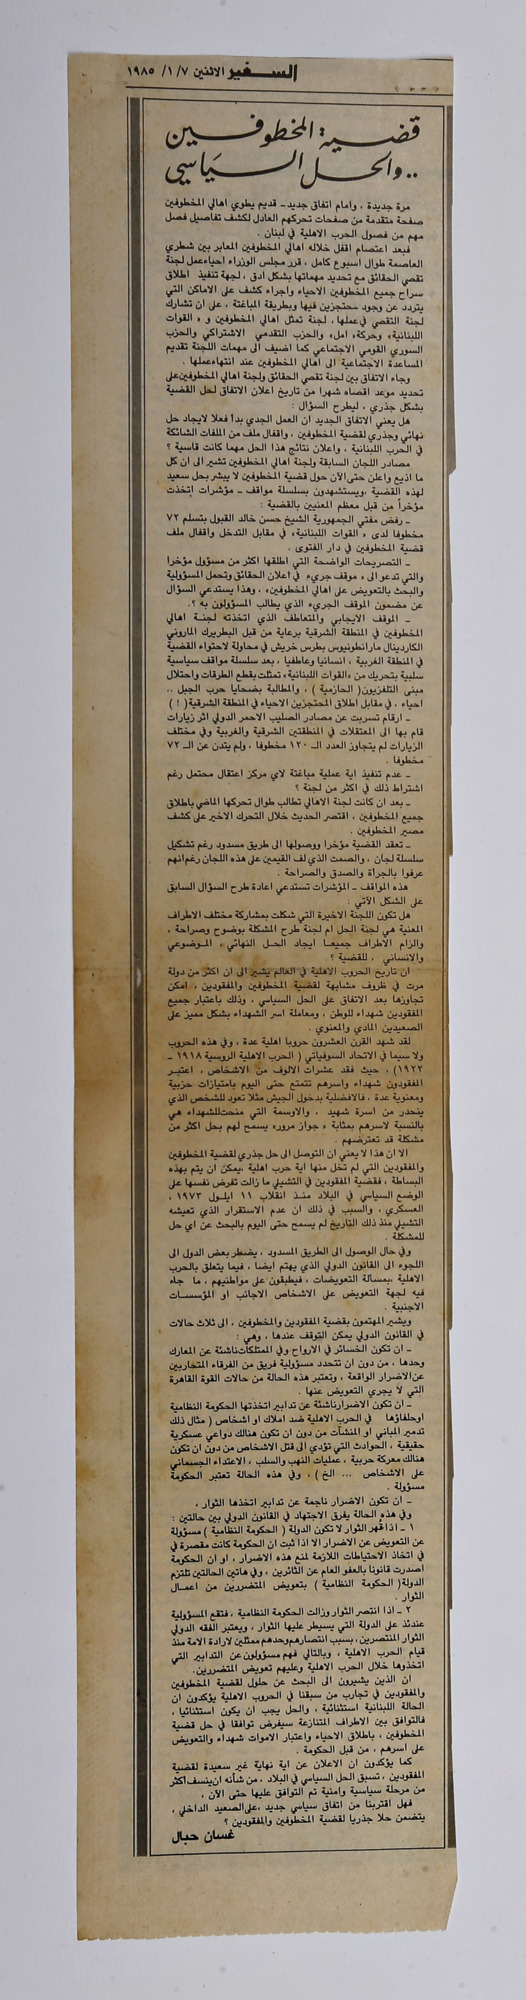 السفير الاثنين ٧/ ١/ ١٩٨٥
قضية المخطوفين
.. والحل السياسي
مرة جديدة ، وامام اتفاق جديد - قديم يطوي اهالي المخطوفين
صفحة متقدمة من صفحات تحركهم العادل لكشف تفاصيل فصل
مهم من فصول الحرب الاهلية في لبنان .
فبعد اعتصام اقفل خلاله اهالي المخطوفين المعابر بين شطري
العاصمة طوال اسبوع كامل ، قرر مجلس الوزراء احياءعمل لجنة
تقصي الحقائق مع تحديد مهماتها بشكل ادق ، لجهة تنفيذ اطلاق
سراح جميع المخطوفين الاحياء واجراء كشف على الاماكن التي
يتردد عن وجود محتجزين فيها وبطريقة المباغتة ، على ان تشارك
لجنة التقصي في عملها، لجنة تمثل اهالي المخطوفين و « القوات
اللبنانية» وحركة« امل» والحزب التقدمي الاشتراكي والحزب
السوري القومي الاجتماعي كما اضيف الى مهمات اللجنة تقديم
المساعدة الاجتماعية الى اهالي المخطوفين عند انتهاءعملها .
وجاء الاتفاق بين لجنة تقصي الحقائق ولجنة اهالي المخطوفين على
تحديد موعد اقصاه شهرا من تاريخ اعلان الاتفاق لحل القضية
بشكل جذري ، ليطرح السؤال :
هل يعني الاتفاق الجديد ان العمل الجدي بدا فعلا لايجاد حل
نهائي وجذري لقضية المخطوفين ، واقفال ملف من الملفات الشائكة
في الحرب اللبنانية ، واعلان نتائج هذا الحل مهما كانت قاسية ؟
مصادر اللجان السابقة ولجنة اهالي المخطوفين تشير الى ان كل
ما اذيع واعلن حتى الآن حول قضية المخطوفين لا يبشر بحل سعيد
لهذه القضية ،ويستشهدون بسلسلة مواقف - مؤشرات اتخذت
مؤخرا من قبل معظم المعنيين بالقضية :
- رفض مفتي الجمهورية الشيخ حسن خالد القبول بتسلم ٧٢
مخطوفا لدى « القوات اللبنانية» في مقابل التدخل واقفال ملف
قضية المخطوفين في دار الفتوى .
- التصريحات الواضحة التي اطلقها اكثر من مسؤول مؤخرا
والتي تدعو الى « موقف جريء» في اعلان الحقائق وتحمل المسؤولية
والبحث بالتعويض على اهالي المخطوفين» ، وهذا يستدعي السؤال
عن مضمون الموقف الجريء الذي يطالب المسؤولون به ؟.
- الموقف الايجابي والمتعاطف الذي اتخذته لجنة اهالي
المخطوفين في المنطقة الشرقية برعاية من قبل البطريرك الماروني
الكاردينال مارانطونيوس بطرس خريش في محاولة لاحتواء القضية
في المنطقة الغربية ، انسانيا وعاطفيا ، بعد سلسلة مواقف سياسية
سلبية بتحريك من «القوات اللبنانية» تمثلت بقطع الطرقات واحتلال
مبنى التلفزيون( الحازمية ) ، والمطالبة بضحايا حرب الجبل ..
احياء ، في مقابل اطلاق المحتجزين الاحياء في المنطقة الشرقية( ! )
- ارقام تسربت عن مصادر الصليب الاحمر الدولي اثر زيارات
قام بها الى المعتقلات في المنطقتين الشرقية والغربية وفي مختلف
الزيارات لم يتجاوز العدد الــ ١٢٠ مخطوفا ، ولم يتدن عن الــ ٧٢
مخطوفا .
- عدم تنفيذ اية عملية مباغتة لاي مركز اعتقال محتمل رغم
اشتراط ذلك في اكثر من لجنة ؟
- بعد ان كانت لجنة الاهالي تطالب طوال تحركها الماضي باطلاق
جميع المخطوفين ، اقتصر الحديث خلال التحرك الاخير على كشف
مصير المخطوفين .
- تعقد القضية مؤخرا ووصولها الى طريق مسدود رغم تشكيل
سلسلة لجان ، والصمت الذي لف القيمين على هذه اللجان رغم انهم
عرفوا بالجرأة والصدق والصراحة .
هذه المواقف - المؤشرات تستدعي اعادة طرح السؤال السابق
على الشكل الآتي :
هل تكون اللجنة الاخيرة التي شكلت بمشاركة مختلف الاطراف
المعنية هي لجنة الحل ام لجنة طرح المشكلة بوضوح وصراحة ،
والزام الاطراف جميعا ايجاد الحل النهائي « الموضوعي
والانساني ، للقضية ؟
ان تاريخ الحروب الاهلية في العالم يشير الى ان اكثر من دولة
مرت في ظروف مشابهة لقضية المخطوفين والمفقودين ، امكن
تجاوزها بعد الاتفاق على الحل السياسي ، وذلك باعتبار جميع
المفقودين شهداء للوطن ، ومعاملة اسر الشهداء بشكل مميز على
الصعيدين المادي والمعنوي .
لقد شهد القرن العشرون حروبا اهلية عدة ، وفي هذه الحروب
ولا سيما في الاتحاد السوفياتي ( الحرب الاهلية الروسية ١٩١٨ -
١٩٢٢) ، حيث فقد عشرات الالوف من الاشخاص ، اعتبر
المفقودون شهداء واسرهم تتمتع حتى اليوم بامتيازات حزبية
ومعنوية عدة ، فالافضلية بدخول الجيش مثلا تعود للشخص الذي
ينحدر من اسرة شهيد ، والاوسمة التي منحت للشهداء هي
بالنسبة لاسرهم بمثابة « جواز مرور» يسمح لهم بحل اكثر من
مشكلة قد تعترضهم .
الا ان هذا لا يعني ان التوصل الى حل جذري لقضية المخطوفين
والمفقودين التي لم تخل منها اية حرب اهلية ،يمكن ان يتم بهذه
البساطة ، فقضية المفقودين في التشيلي ما زالت تفرض نفسها على
الوضع السياسي في البلاد منذ انقلاب ١١ ايلول ١٩٧٣ ،
العسكري ، والسبب في ذلك ان عدم الاستقرار الذي تعيشه
التشيلي منذ ذلك التاريخ لم يسمح حتى اليوم بالبحث عن اي حل
للمشكلة .
وفي حال الوصول الى الطريق المسدود ، يضطر بعض الدول الى
اللجوء الى القانون الدولي الذي يهتم ايضا ، فيما يتعلق بالحرب
الاهلية ،بمسالة التعويضات ، فيطبقون على مواطنيهم ، ما جاء
فيه لجهة التعويض على الاشخاص الاجانب او المؤسسات
الاجنبية .
ويشير المهتمون بقضية المفقودين والمخطوفين ، الى ثلاث حالات
في القانون الدولي يمكن التوقف عندها ، وهي :
- ان تكون الخسائر في الارواح وفي الممتلكات ناشئة عن المعارك
وحدها ، من دون ان تتحدد مسؤولية فريق من الفرقاء المتحاربين
عن الاضرار الواقعة ، وتعتبر هذه الحالة من حالات القوة القاهرة
التي لا يجري التعويض عنها .
- ان تكون الاضرار ناشئة عن تدابير اتخذتها الحكومة النظامية
اوحلفاؤها في الحرب الاهلية ضد املاك او اشخاص ( مثال ذلك
تدمير المباني او المنشآت من دون ان تكون هنالك دواعي عسكرية
حقيقية ، الحوادث التي تؤدي الى قتل الاشخاص من دون ان تكون
هنالك معركة حربية ، عمليات النهب والسلب ، الاعتداء الجسماني
على الاشخاص ... الخ ) ، وفي هذه الحالة تعتبر الحكومة
مسؤولة .
- ان تكون الاضرار ناجمة عن تدابير اتخذها الثوار ،
وفي هذه الحالة يفرق الاجتهاد في القانون الدولي بين حالتين :
١ - اذا قُهر الثوار لا تكون الدولة ( الحكومة النظامية ) مسؤولة
عن التعويض عن الاضرار الا اذا ثبت ان الحكومة كانت مقصرة في
في اتخاذ الاحتياطات اللازمة لمنع هذه الاضرار ، او ان الحكومة
اصدرت قانونا بالعفو العام عن الثائرين ، وفي هاتين الحالتين تلتزم
الدولة( الحكومة النظامية ) بتعويض المتضررين من اعمال
الثوار .
٢ - اذا انتصر الثوار وزالت الحكومة النظامية ، فتقع المسؤولية
عندئذ على الدولة التي يسيطر عليها الثوار ، ويعتبر الفقه الدولي
الثوار المنتصرين، بسبب انتصارهم وحدهم ممثلين لارادة الامة منذ
قيام الحرب الاهلية ، وبالتالي فهم مسؤولون عن التدابير التي
اتخذوها خلال الحرب الاهلية وعليهم تعويض المتضررين.
ان الذين يشيرون الى البحث عن حلول لقضية المخطوفين
والمفقودين في تجارب من سبقنا في الحروب الاهلية يؤكدون ان
الحالة اللبنانية استثنائية ، والحل يجب ان يكون استثنائيا ،
فالتوافق بين الاطراف المتنازعة سيفرض توافقا في حل قضية
المخطوفين ، باطلاق الاحياء واعتبار الاموات شهداء والتعويض
على اسرهم ، من قبل الحكومة .
كما يؤكدون ان الاعلان عن اية نهاية غير سعيدة لقضية
المفقودين ، تسبق الحل السياسي في البلاد ، من شأنه ان ينسف اكثر
من مرحلة سياسية وامنية تم التوافق عليها حتى الآن .
فهل اقتربنا من اتفاق سياسي جديد ،على الصعيد الداخلي ،
يتضمن حلا جذريا لقضية المخطوفين والمفقودين ؟
غسان حبال